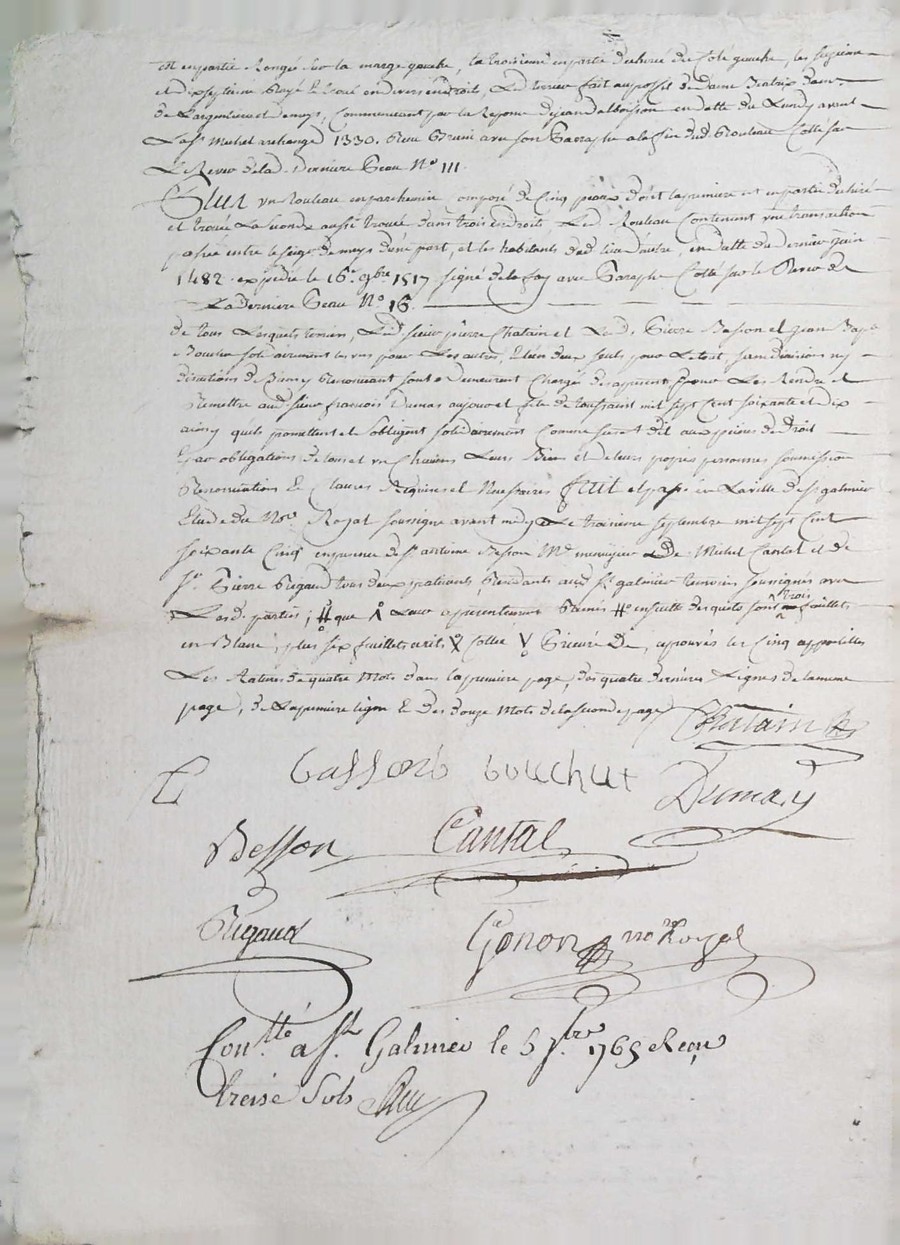 est en partie Rongée sur la marge gauche, la troisieme en partie dechirée du Coté gauche, les sizieme
et dixseptieme Rayé en divers endroit, Led. terrier fait au proffit de dame Beatrix dame
de Largentieu et de meys, Commencant par la Reponse de jean dalbaisson en datte du Lundy avant
La st Michel archange 1330. avec son Paraphe a la fin dud. Rouleau Cotté sur
Le Revers de lad. derniere Peau No 111.
Plus vn Rouleau en parchemin, composé de Cinq peaux dont la premiere est en partie dechirée
et trouée La seconde aussi trouée dans trois endroits, Led. Rouleau Contenant vne transaction
passée entre le seigr de meys d'une part, et les habitants dud. lieu d'autre, en datte du dernier juin
1482. expediée le 16e. 9bre 1517. signé delafay avec Paraphe Cotté sur le Revers de
La derniere Peau No 16.
de tous Lesquels terriers, Led. sieur pierre Chatain et Led. Pierre Basson et Jean Bap.
Bouchu solidairement les vns pour Les autres, L'un deux seul pour Le tout, sans division ny
discutions de Biens y Renoncant sont & demeurent Chargés des apresent pour Les Rendre et
Remettre aud. sieur francois Dumas au jour et fete de toussaint mil sept Cent soixante et dix
ainsy quils promettent et s'obligent solidairement Comme sus est dit aux peines de Droit
Par obligations de tous et vn Chacuns Leurs Biens et de leurs propres personnes soumission
Renonciations & Clauses Requises et Necessaires fait et passé en La ville de st galmier
Etude du Nore. Royal soussigné avant midy Le troisieme septembre mil sept Cent
soixante Cinq en presence de sr. antoine Besson Md. menuizier & De Michel Cantal et de
sr. Pierre Rigaud tous deux patissiers, habitants aud. st galmier temoins soussignés avec
Lesd. parties; # que Leur appartiennent Remis # ensuitte desquels sont trois feuillets
en Blanc, plus six feuillets ecrits Cottée De, approuvés les Cinq appostilles
Les Ratures de quatre Mots dans la premiere page, des quatre dernieres Lignes de la meme
page, de La premiere ligne & des douze Mots de la seconde page Chatain
basson bouchut
Dumas
Besson Cantal
Rigaud
Genon no Royal
Conttlé a St. Galmier le 5 7bre 1765 Recu
treise sols